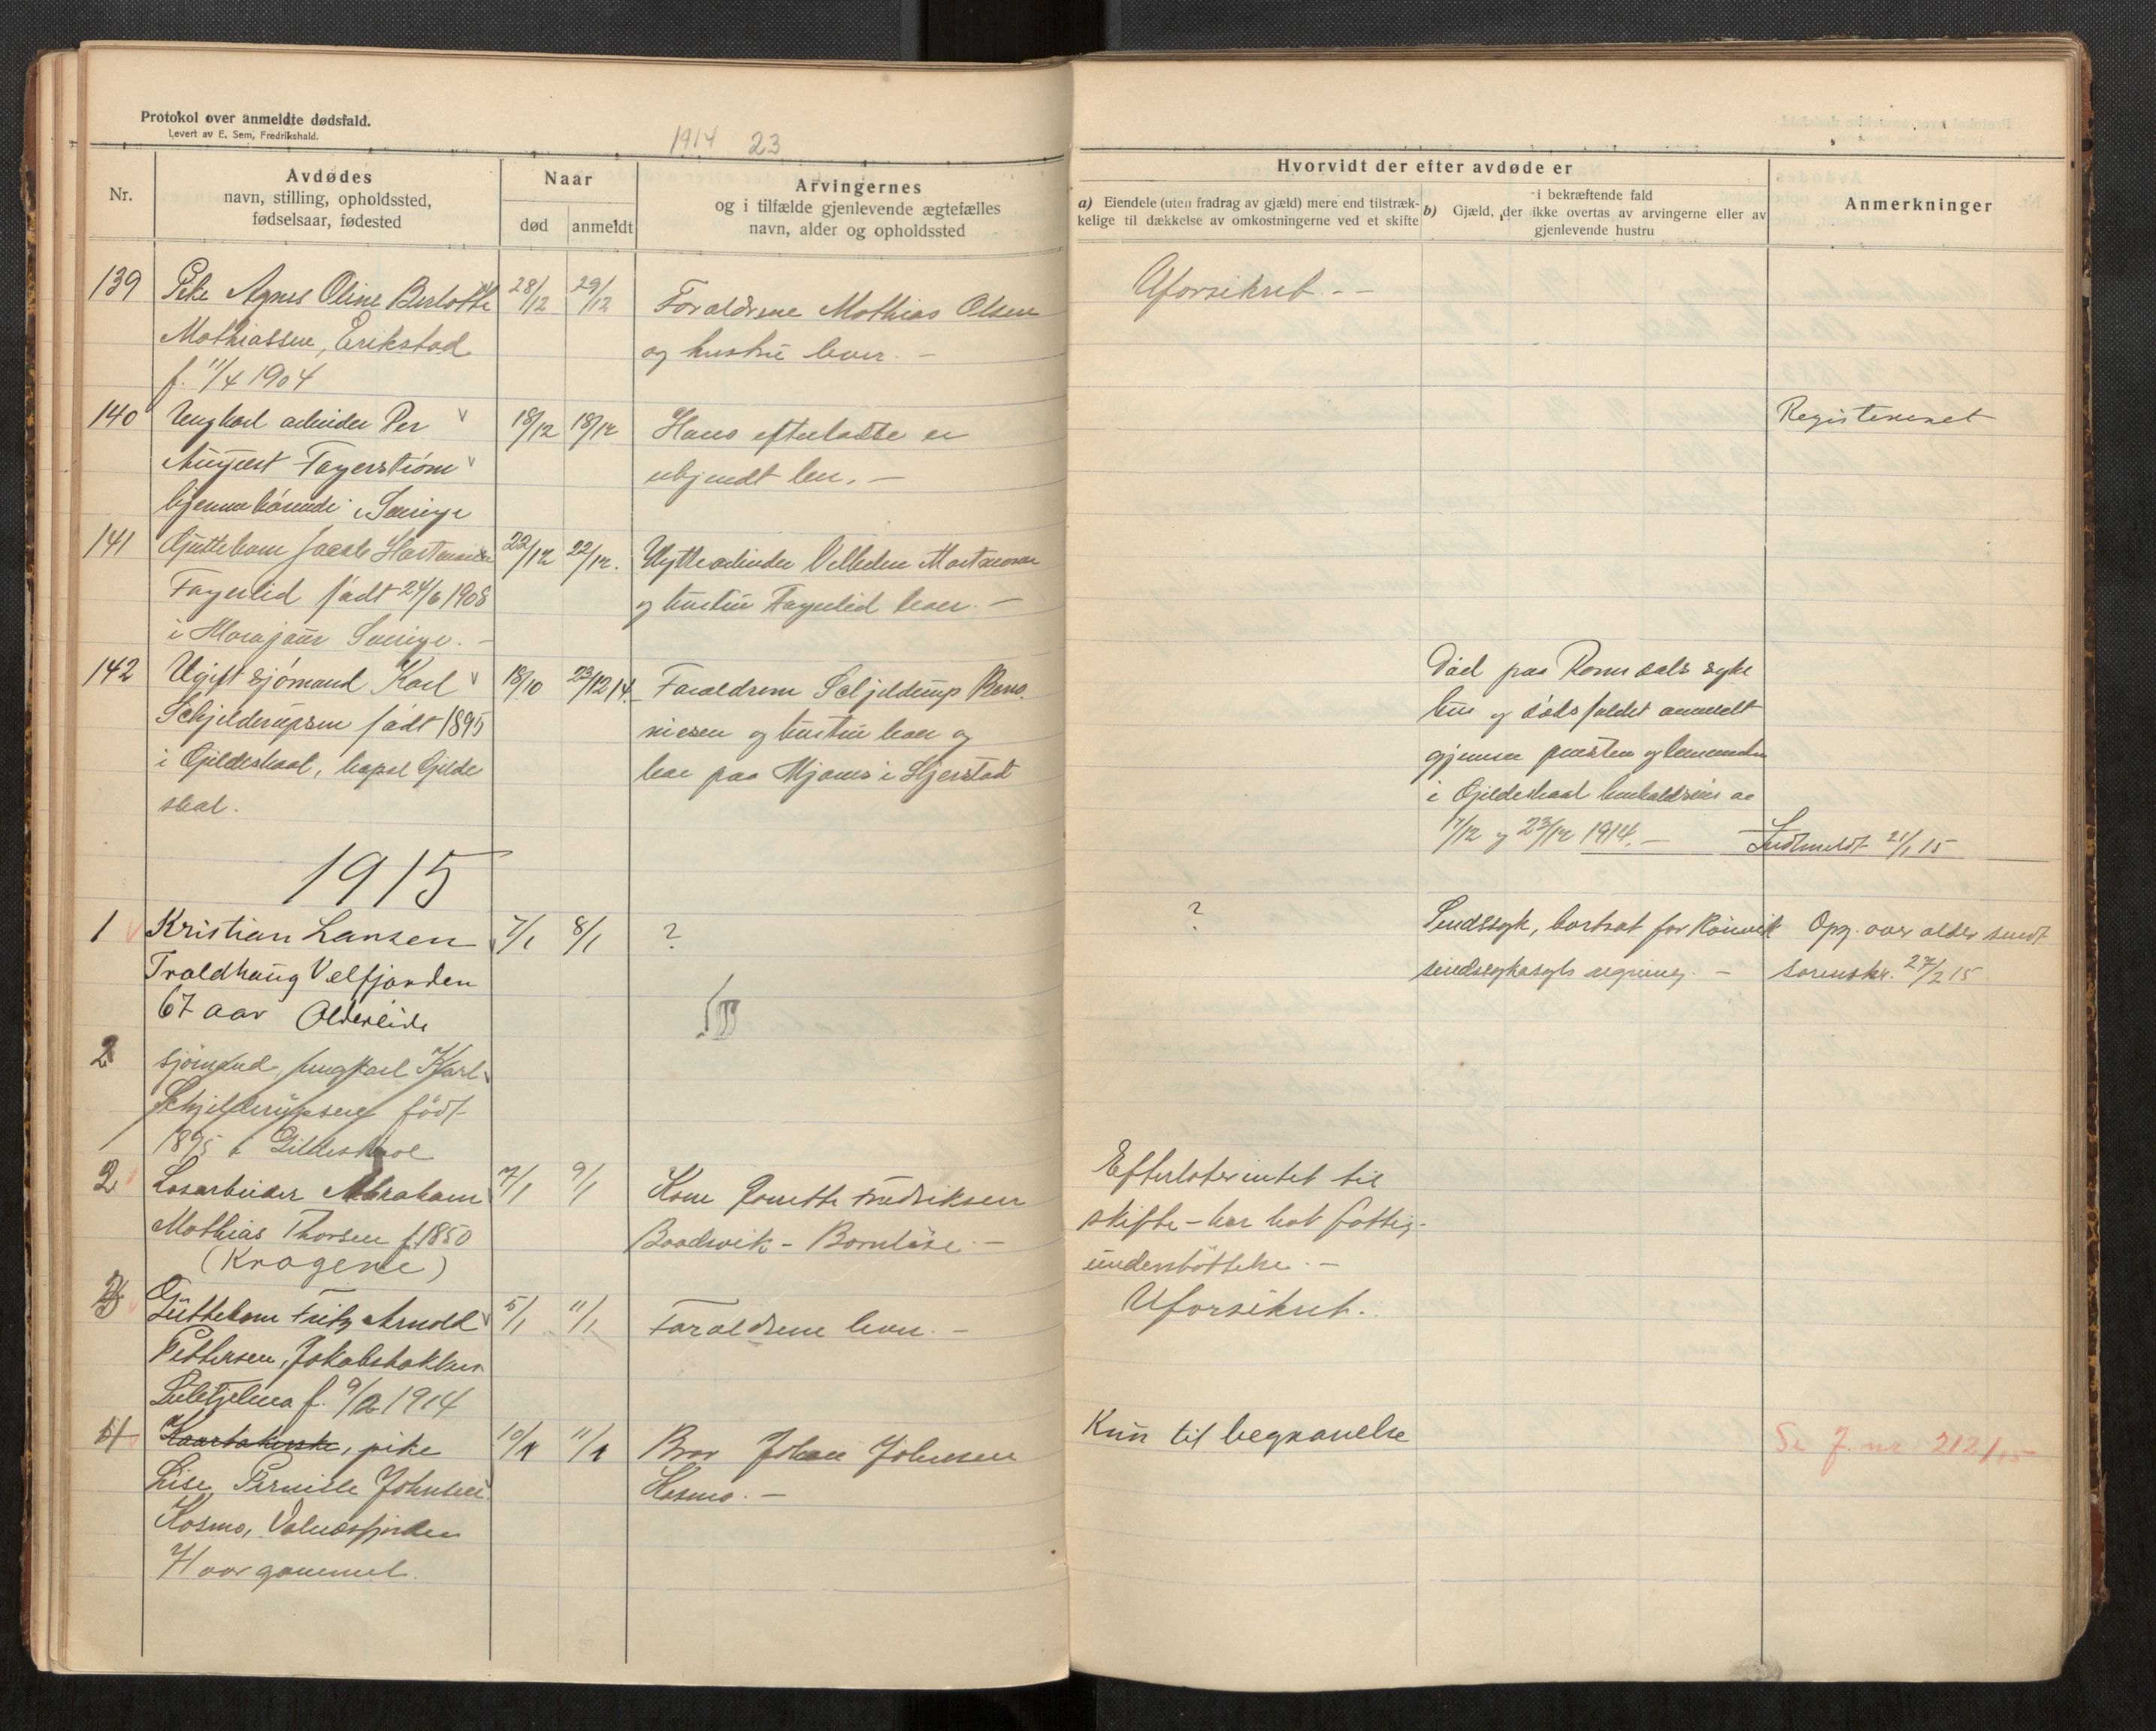 Protokol over anmeldte dødsfald.
Levert av E. Sem, Fredrikshald.
1914 23
Nr.
Avdødes
navn, stilling, opholdssted,
fødselsaar, fødested
Naar
død
anmeldt
Arvingernes
og i tilfælde gjenlevende ægtefælles
navn, alder og opholdssted
Hvorvidt der efter avdøde er
a) Eiendele (uten fradrag av gjæld) mere end tilstræk-
kelige til dækkelse av omkostningerne ved et skifte
i bekræftende fald
b) Gjæld, der ikke overtas av arvingerne eller av
gjenlevende hustru
Anmerkninger
139
Pike Agnes Oline Berlotte
Mathiassen, Erikstad
f. 11/4 1904
28/12
29/12
Forældrene Mathias Olsen
og hustru lever. –
Uforsikret. – –
140
Ungkarl arbeider Per
August Fagerstrøm
hjemmehørende i Sverige
18/12
18/12
Hans efterladte er
ukjendt her. –
Registreret
141
Guttebarn Jacob
Fagerlid født 24/6 1908
i Sverige. –
22/12
22/12.
Hyttearbeider
og hustru Fagerlid lever. –
142
Ugift sjømand Karl
Schjelderupsen født 1895
i Gildeskaal, kapel Gilde
skal.
18/10
23/12 14.
Forældrene Schjelderup
og hustru lever og
bor paa i Skjerstad
Død paa Romsdals syke
hus og dødsfaldet anmeldt
gjennem presten og lensmanden
i Gildeskaal henholdsvis av
17/12 og 23/12 1914. –
Indmeldt 21/1 15
1915
1
Kristian Larsen
Troldhaug Velfjorden
67 aar Oldereide
7/1
8/1
?
?
Sindssyk, bortsat for Rønvik
sindssykeasyls regning. –
Opg. over alder sendt
sorenskr. 27/2 15
2
Sjømand, ungkarl Karl
Schjelderupsen født
1895 i Gildeskaal
2
Løsarbeider Abraham
Mathias Thorsen f. 1850
(Kragerø)
7/1
9/1
Kone Fredriksen
– Barnløse. –
Efterlater intet til
skifte – har hat fattig-
understøttelse. –
3
Guttebarn Fritz Arnold
Pettersen, Jakobsbakken
Sulitjelma f. 9/2 1914
5/1
11/1
Forældrene lever. –
Uforsikret.
4
pike
Lise Pernille Johnsen
Kosmo, Valnesfjorden
71 aar gammel.
10/1
11/1
Bror Johan Johnsen
Kosmo. –
Kun til begravelse
Se J. nr. 212/15